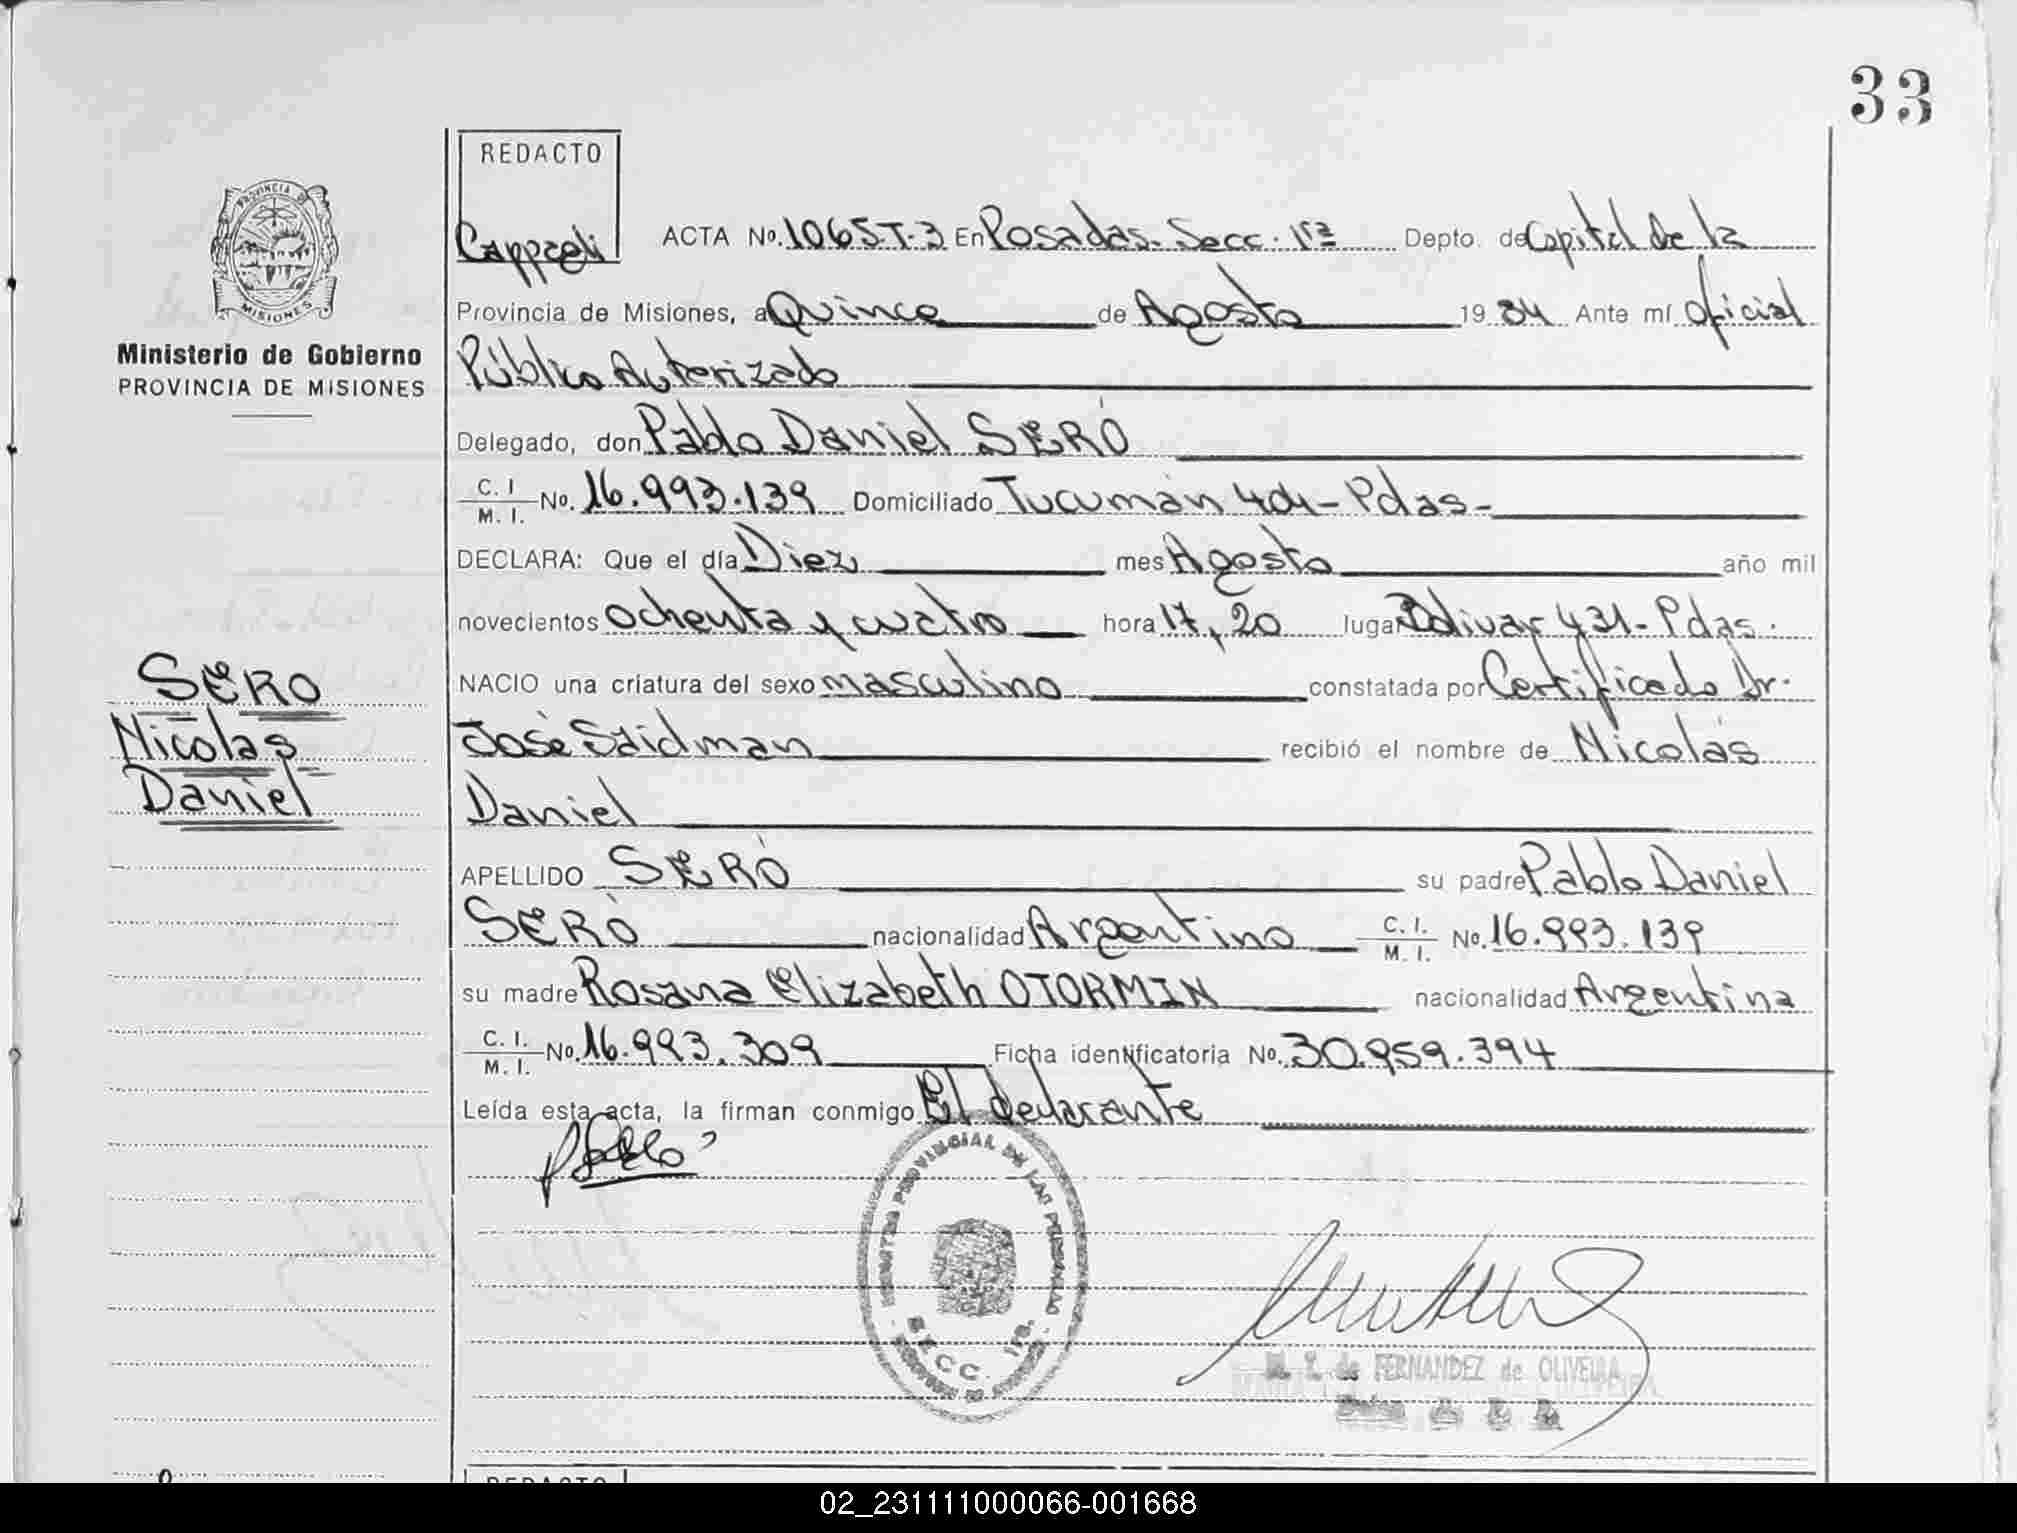 33
REDACTO
PROVINCIA DE
MISIONES
Ministerio de Gobierno
PROVINCIA DE MISIONES
ACTA No. 1065-T-3 En Posadas. Secc. 1ra Depto. de Capital de la
Provincia de Misiones, a Quince de Agosto 19 84 Ante mí oficial
Público Autorizado
Delegado, don Pablo Daniel SERÓ
C. I. M. I. No. 16.993.139 Domiciliado Tucumán 401 - Pdas -
DECLARA: Que el día Diez mes Agosto año mil
novecientos ochenta y cuatro hora 17,20 lugar Bolivar 431 - Pdas.
NACIO una criatura del sexo masculino constatada por Certificado Dr.
José Saidman recibió el nombre de Nicolás
Daniel
SERO
Nicolas
Daniel
APELLIDO SERÓ su padre Pablo Daniel
SERÓ nacionalidad Argentino C. I. M. I. No. 16.993.139
su madre Rosana Elizabeth OTORMIN nacionalidad Argentina
C. I. M. I. No. 16.993.309 Ficha identificatoria No. 30.959.394
Leída esta acta, la firman conmigo El declarante
PROVINCIAL DE LAS PERSONAS
SECC. 1ra.
de FERNANDEZ de OLIVEIRA
REDACTO
02_231111000066-001668